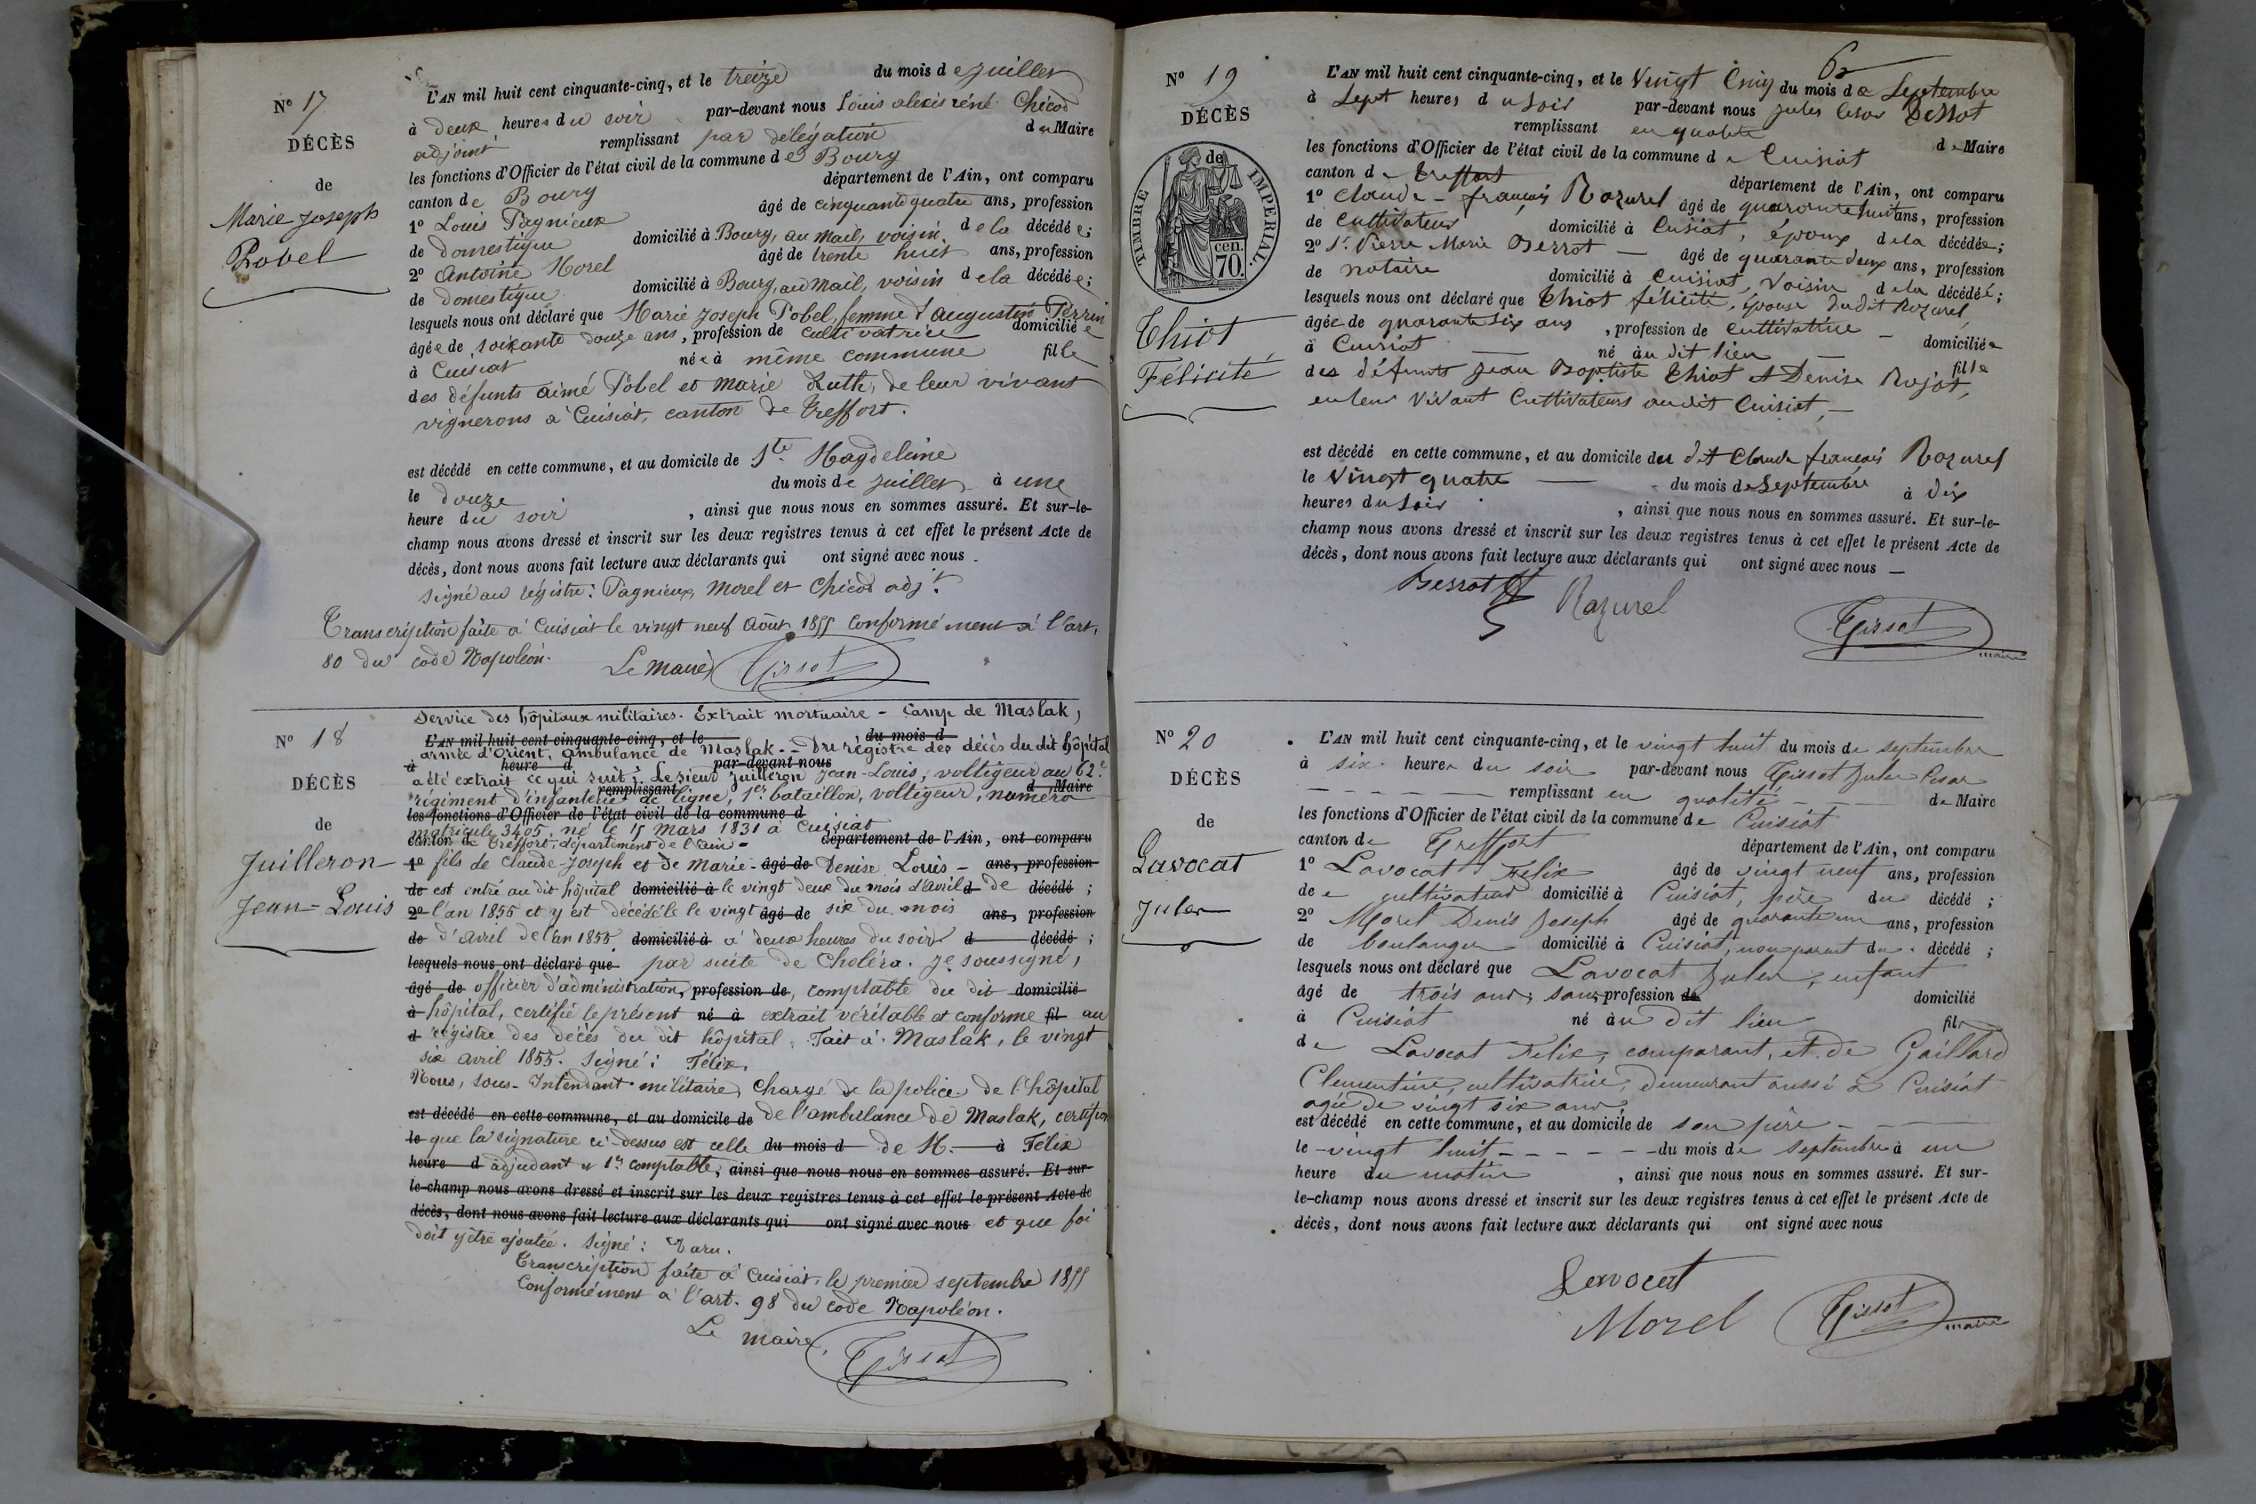 N° 17
DÉCÈS
de
Marie Joseph
Pobel
L'AN mil huit cent cinquante-cinq, et le treize du mois de Juillet
à deux heures du soir par-devant nous Louis alexis réné Chicod
adjoint remplissant par délégation du Maire
les fonctions d'Officier de l'état civil de la commune de Bourg
canton de Bourg département de l'Ain, ont comparu
1° Louis Pagnieux âgé de cinquante quatre ans, profession
de domestique domicilié à Bourg, au mail, voisin de la décédée;
2° Antoine Morel âgé de trente huit ans, profession
de domestique domicilié à Bourg, au mail, voisin de la décédée;
lesquels nous ont déclaré que Marie Joseph Pobel femme d'augustin Perrin
âgée de soixante douze ans, profession de cultivatrice domiciliée
à Cuisiat née à même commune fille
des défunts aimé Pobel et marie Ruth, de leur vivant
vignerons à Cuisiat, canton de Treffort.
est décédé en cette commune, et au domicile de Ste Magdeleine
le douze du mois de Juillet à une
heure du soir, ainsi que nous nous en sommes assuré. Et sur-le-
champ nous avons dressé et inscrit sur les deux registres tenus à cet effet le présent Acte de
décès, dont nous avons fait lecture aux déclarants qui ont signé avec nous.
Signé au régistre: Pagnieux, Morel et Chicod adjt.
Transcription faite à Cuisiat le vingt neuf Août 1855 conformément à l'art.
80 du code Napoléon.
Le maire, Tissot
N° 18
DÉCÈS
de
Juilleron
Jean-Louis
Service des hôpitaux militaires. Extrait mortuaire - Camp de Maslak,
L'AN mil huit cent cinquante-cinq, et le du mois d
armée d'Orient, ambulance de Maslak. - Du régistre des décès du dit hôpital
à heure d par-devant nous
a été extrait ce qui suit: Le sieur Juilleron Jean-Louis, voltigeur au 62e
remplissant d Maire
régiment d'infanterie de ligne, 1er bataillon, voltigeur, numéro
les fonctions d'Officier de l'état civil de la commune d
matricule 3405, né le 15 mars 1831 à Cuisiat
canton de Treffort, département de l'ain - département de l'Ain, ont comparu
1° fils de Claude-Joseph et de Marie- âgé de Denise Louis - ans, profession
de est entré au dit hôpital domicilié à le vingt deux du mois d'avril d de décédé;
2° l'an 1855 et y est décédé le le vingt âgé de six du mois ans, profession
de d'avril de l'an 1855 domicilié à à deux heures du soir d décédé;
lesquels nous ont déclaré que par suite de Choléra. Je soussigné,
âgé de officier d'administration, profession de, comptable du dit domicilié
à hôpital, certifie le présent né à extrait véritable et conforme fil au
d régistre des décès du dit hôpital. Fait à Maslak, le vingt
six avril 1855. Signé: Félix.
Nous, sous-Intendant militaire, Chargé de la police de l'hôpital
est décédé en cette commune, et au domicile de de l'ambulance de Maslak, certifions
le que la signature ci-dessus est celle du mois d de M. à Félix
heure d adjudant comptable, ainsi que nous nous en sommes assuré. Et sur-
le-champ nous avons dressé et inscrit sur les deux registres tenus à cet effet le présent Acte de
décès, dont nous avons fait lecture aux déclarants qui ont signé avec nous et que foi
doit y être ajoutée. Signé:
Transcription faite à Cuisiat, le premier septembre 1855
Conformément à l'art. 98 du code Napoléon.
Le maire, Tissot
N° 19
DÉCÈS
de
TIMBRE IMPERIAL.
cen.
70.
Thiot
Félicité
L'AN mil huit cent cinquante-cinq, et le Vingt Cinq du mois de Septembre
à Sept heures du Soir par-devant nous Jules César Tissot
remplissant en qualité de Maire
les fonctions d'Officier de l'état civil de la commune de Cuisiat
canton de Treffort département de l'Ain, ont comparu
1° Claude-françois Razurel âgé de quarante huit ans, profession
de Cultivateur domicilié à Cuisiat, époux de la décédée;
2° Sr. Pierre Marie Perrot - âgé de quarante deux ans, profession
de notaire domicilié à Cuisiat, Voisin de la décédée;
lesquels nous ont déclaré que Thiot félicité, épouse dudit Razurel,
âgée de quarante Six ans, profession de Cultivatrice - domiciliée
à Cuisiat né au dit lieu fille
des défunts Jean Baptiste Thiot et Denise Rojat,
en leur vivant Cultivateurs audit Cuisiat, -
est décédé en cette commune, et au domicile du dit Claude françois Razurel
le Vingt quatre - du mois de Septembre à dix
heures du Soir, ainsi que nous nous en sommes assuré. Et sur-le-
champ nous avons dressé et inscrit sur les deux registres tenus à cet effet le présent Acte de
décès, dont nous avons fait lecture aux déclarants qui ont signé avec nous -
Perrot Razurel Tissot
maire
N° 20
DÉCÈS
de
Lavocat
Jules
L'AN mil huit cent cinquante-cinq, et le vingt huit du mois de septembre
à six heures du soir par-devant nous Tissot Jules César
remplissant en qualité de Maire
les fonctions d'Officier de l'état civil de la commune de Cuisiat
canton de Treffort département de l'Ain, ont comparu
1° Lavocat Félix âgé de vingt neuf ans, profession
de cultivateur domicilié à Cuisiat, père du décédé;
2° Morel Denis Joseph âgé de quarante un ans, profession
de boulanger domicilié à Cuisiat, non parent du décédé;
lesquels nous ont déclaré que Lavocat Jules, enfant
âgé de trois ans, sans profession de domicilié
à Cuisiat né au dit lieu fils
de Lavocat Félix, comparant, et de Gaillard
Clementine, cultivatrice, demeurant aussi à Cuisiat
agée de vingt six ans
est décédé en cette commune, et au domicile de son père
le vingt huit du mois de septembre à une
heure du matin, ainsi que nous nous en sommes assuré. Et sur-
le-champ nous avons dressé et inscrit sur les deux registres tenus à cet effet le présent Acte de
décès, dont nous avons fait lecture aux déclarants qui ont signé avec nous
Lavocat
Morel Tissot
maire